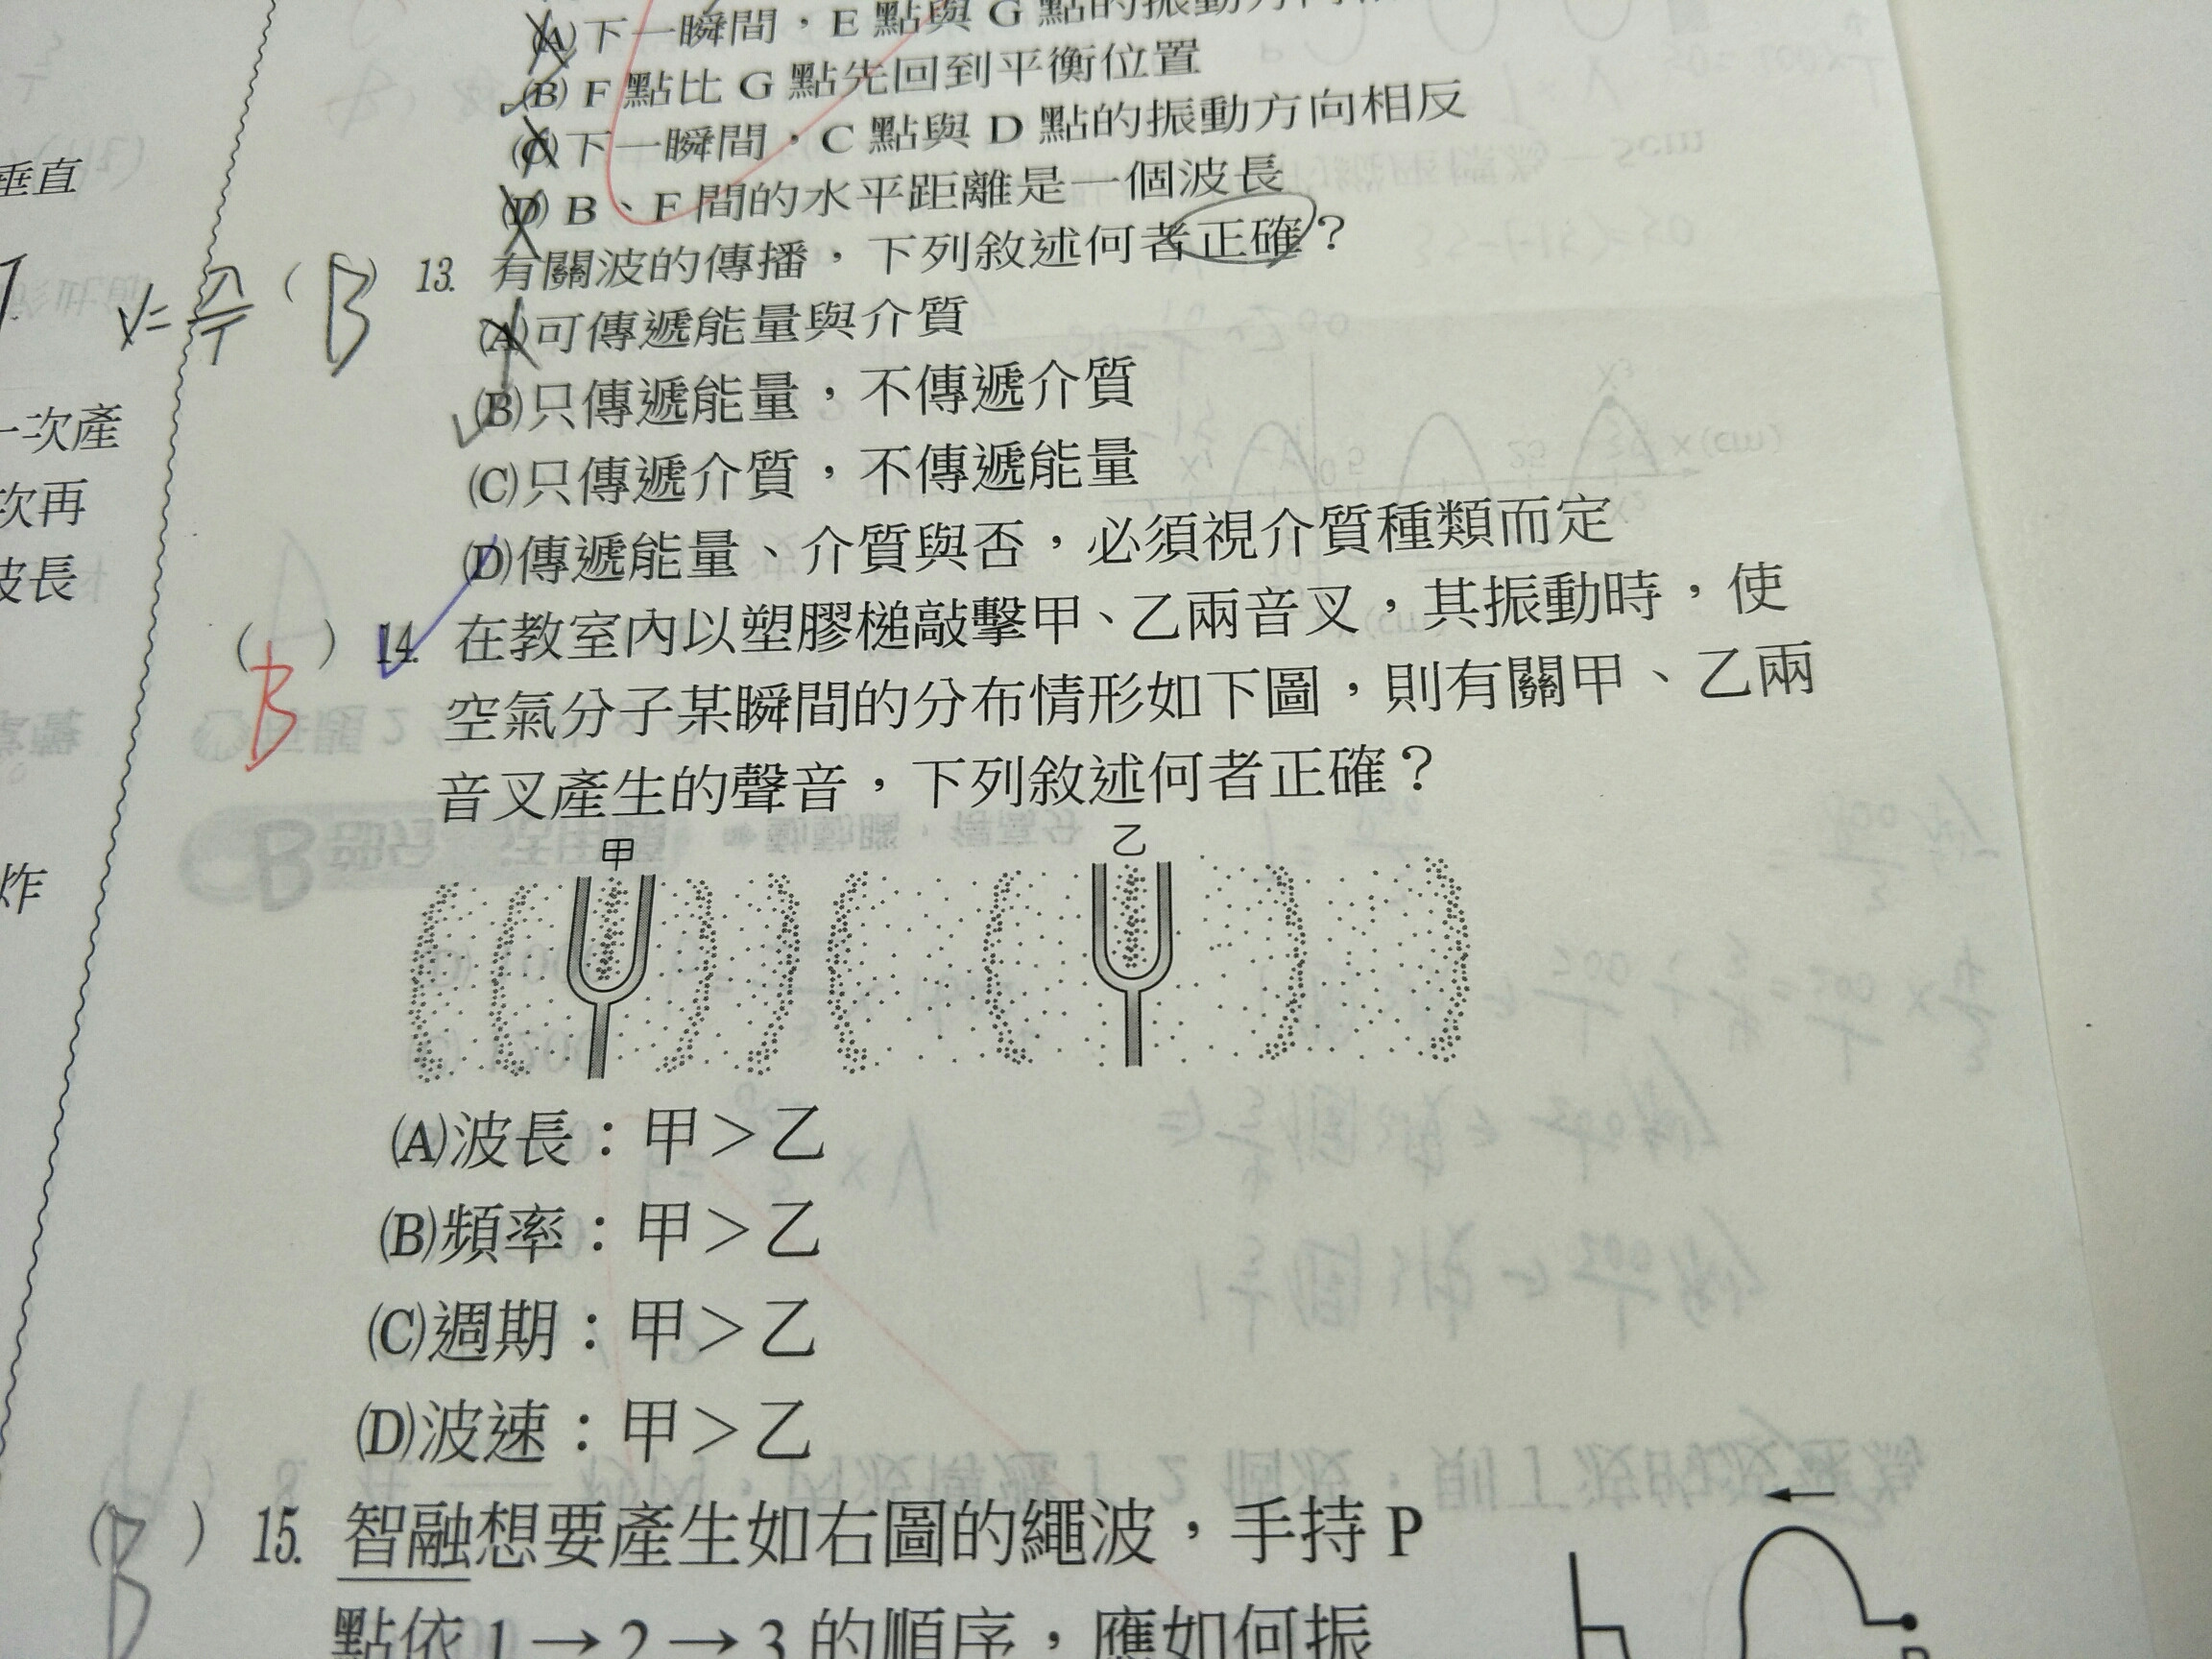 (A)下一瞬間，E 點與 G 點的振動方向
(B) F 點比 G 點先回到平衡位置
(C)下一瞬間，C 點與 D 點的振動方向相反
(D) B、F 間的水平距離是一個波長
垂直
V=λ/T
(B) 13. 有關波的傳播，下列敘述何者正確？
(A)可傳遞能量與介質
(B)只傳遞能量，不傳遞介質
一次產
(C)只傳遞介質，不傳遞能量
次再
(D)傳遞能量、介質與否，必須視介質種類而定
波長
( B ) 14. 在教室內以塑膠槌敲擊甲、乙兩音叉，其振動時，使
空氣分子某瞬間的分布情形如下圖，則有關甲、乙兩
音叉產生的聲音，下列敘述何者正確？
炸
甲 乙
(A)波長：甲＞乙
(B)頻率：甲＞乙
(C)週期：甲＞乙
(D)波速：甲＞乙
(B) 15. 智融想要產生如右圖的繩波，手持 P
點依 1→2→3 的順序，應如何振